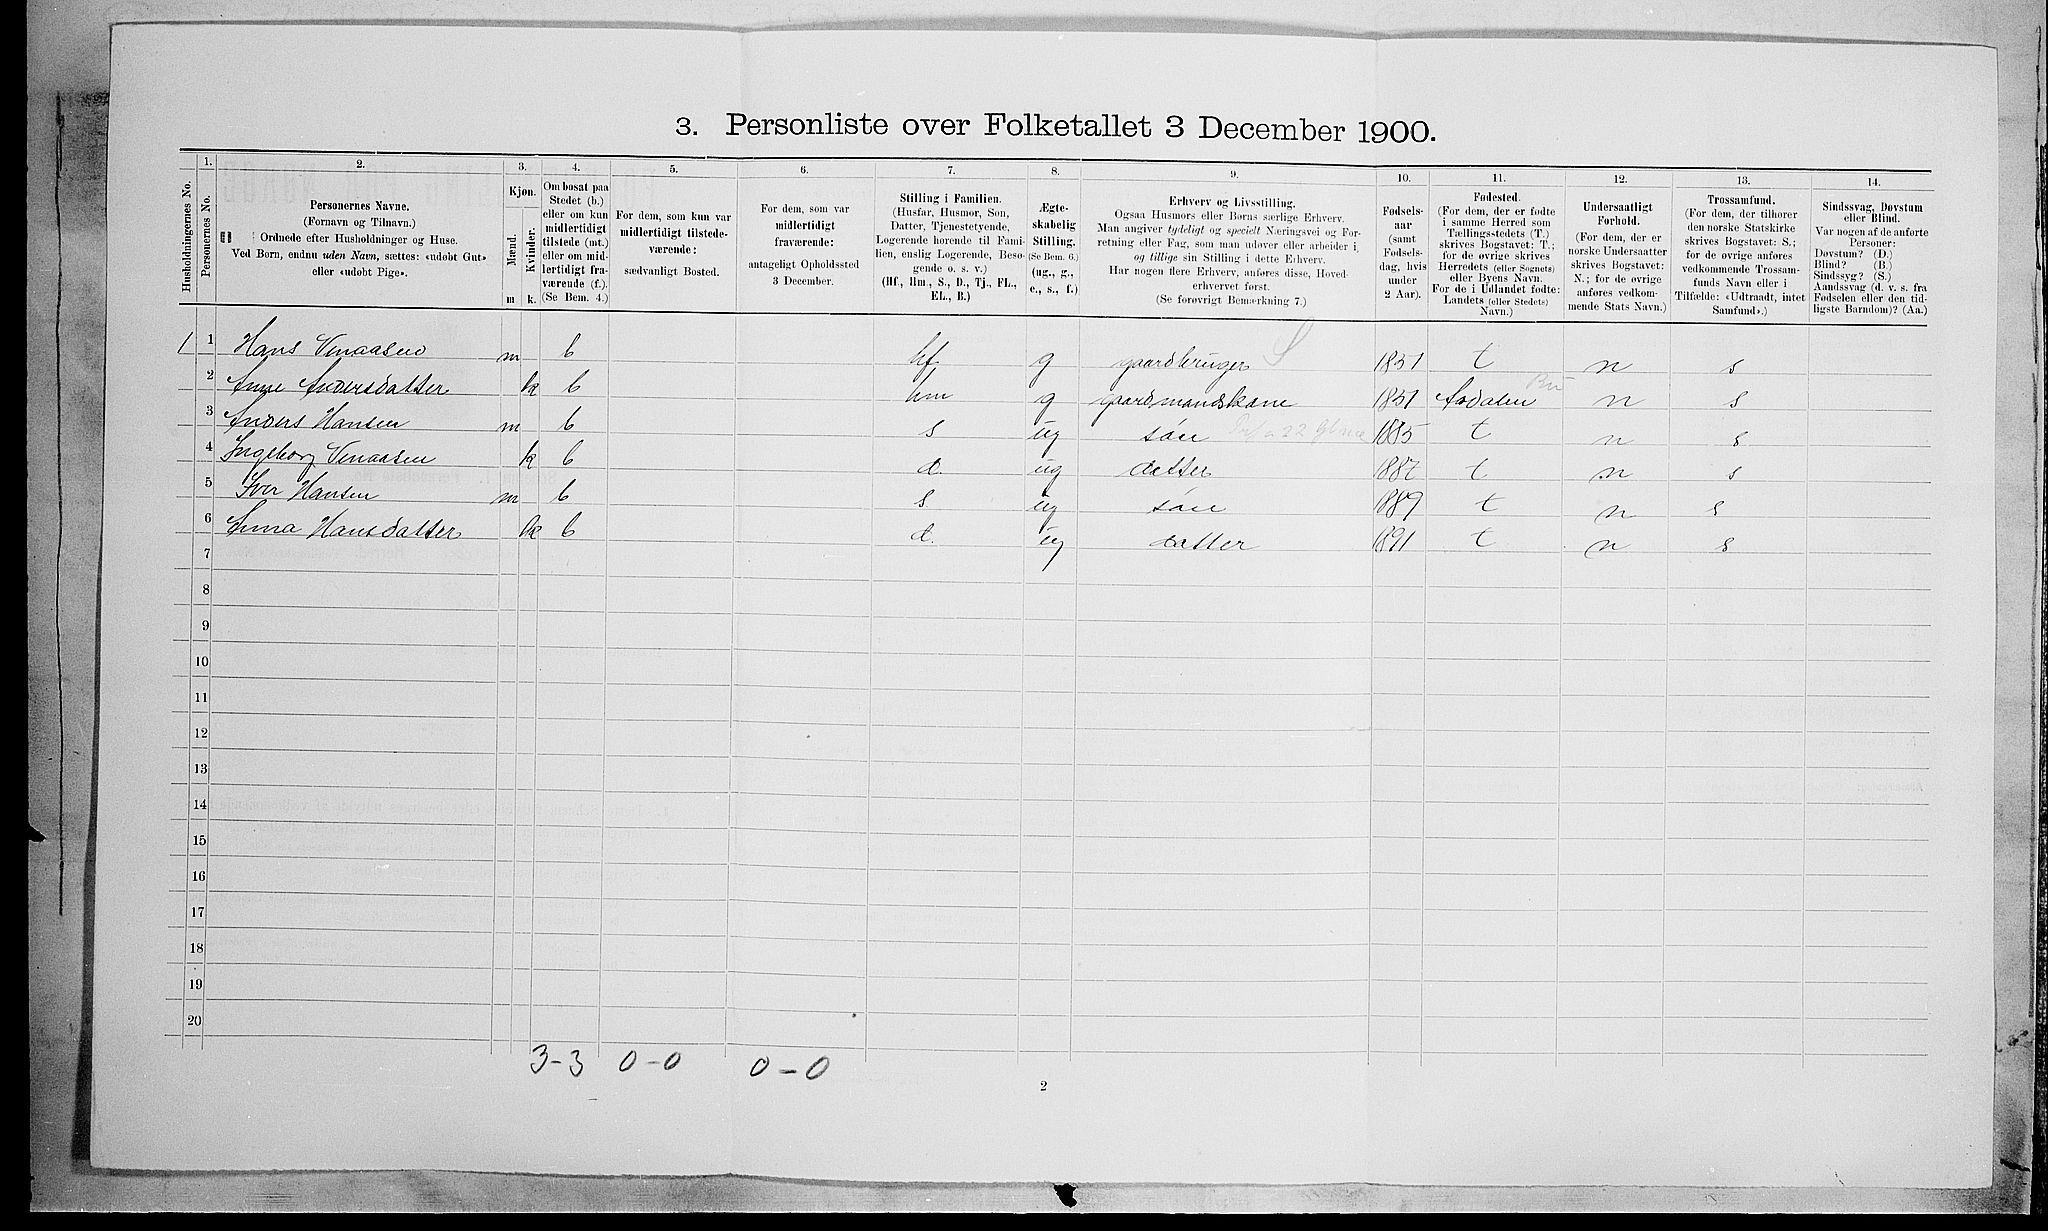 3. Personliste over Folketallet 3 December 1900.
1. 2. 3. 4. 5. 6. 7. 8. 9. 10. 11. 12. 13. 14.
Husholdningernes No.
Personernes No.
Personernes Navne.
(Fornavn og Tilnavn.)
Ordnede efter Husholdninger og Huse.
Ved Børn, endnu uden Navn, sættes: «udøbt Gut»
eller «udøbt Pige».
Kjøn.
Mænd.
Kvinder.
m k.
Om bosat paa
Stedet (b.)
eller om kun
midlertidigt
tilstede (mt.)
eller om mid-
lertidigt fra-
værende (f.).
(Se Bem. 4.)
For dem, som kun var
midlertidigt tilstede-
værende:
sædvanligt Bosted.
For dem, som var
midlertidigt
fraværende:
antageligt Opholdssted
3 December.
Stilling i Familien.
(Husfar, Husmor, Søn,
Datter, Tjenestetyende,
Logerende hørende til Fami-
lien, enslig Logerende, Besø-
gende o. s. v.)
(Hf., Hm., S., D., Tj., FL.,
EL., B.)
Ægte-
skabelig
Stilling.
(Se Bem. 6.)
(ug., g.,
e., s., f.)
Erhverv og Livsstilling.
Ogsaa Husmors eller Børns særlige Erhverv.
Man angiver tydeligt og specielt Næringsvei og For-
retning eller Fag, som man udøver eller arbeider i,
og tillige sin Stilling i dette Erhverv.
Har nogen flere Erhverv, anføres disse, Hoved-
erhvervet først.
(Se forøvrigt Bemærkning 7.)
Fødsels-
aar
(samt
Fødsels-
dag, hvis
under
2 Aar).
Fødested.
(For dem, der er fødte
i samme Herred som
Tællingsstedets (T.)
skrives Bogstavet: T.;
for de øvrige skrives
Herredets (eller Sognets)
eller Byens Navn.
For de i Udlandet fødte:
Landets (eller Stedets)
Navn.)
Undersaatligt
Forhold.
(For dem, der er
norske Undersaatter
skrives Bogstavet:
N.; for de øvrige
anføres vedkom-
mende Stats Navn.)
Trossamfund.
(For dem, der tilhører
den norske Statskirke
skrives Bogstavet: S.;
for de øvrige anføres
vedkommende Trossam-
funds Navn eller i
Tilfælde: «Udtraadt, intet
Samfund».)
Sindssvag, Døvstum
eller Blind.
Var nogen af de anførte
Personer:
Døvstum? (D.)
Blind? (B.)
Sindssyg? (S.)
Aandssvag (d. v. s. fra
Fødselen eller den tid-
ligste Barndom)? (Aa.)
1 1 Hans m b hf g gaardbruger S 1851 t n s
2 Anne Andersdatter k b hm g gaardmandskone 1851 Aadalen n s
3 Anders Hansen m b s ug søn 1885 t n s
4 Ingeborg k b d. ug datter 1887 t n s
5 Iver Hansen m b s ug søn 1889 t n s
6 Anna Hansdatter k b d. ug datter 1891 t n s
7
8
9
10
11
12
13
14
15
16
17
18
19
20
3-3 0-0 0-0
2